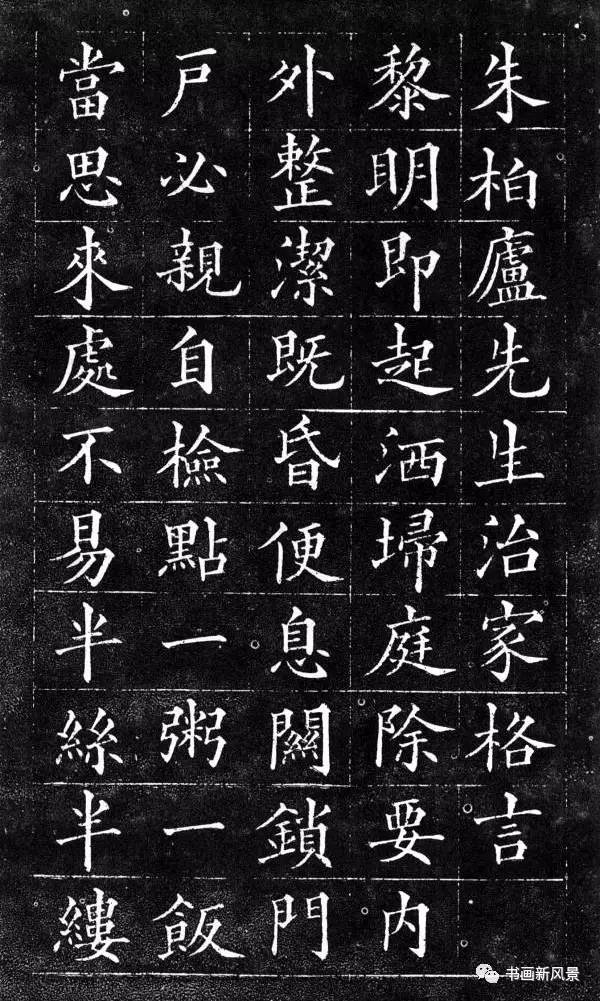 朱柏廬先生治家格言
黎明即起洒埽庭除要内
外整潔既昏便息關鎖門
戶必親自檢點一粥一飯
當思來處不易半絲半縷
书画新风景